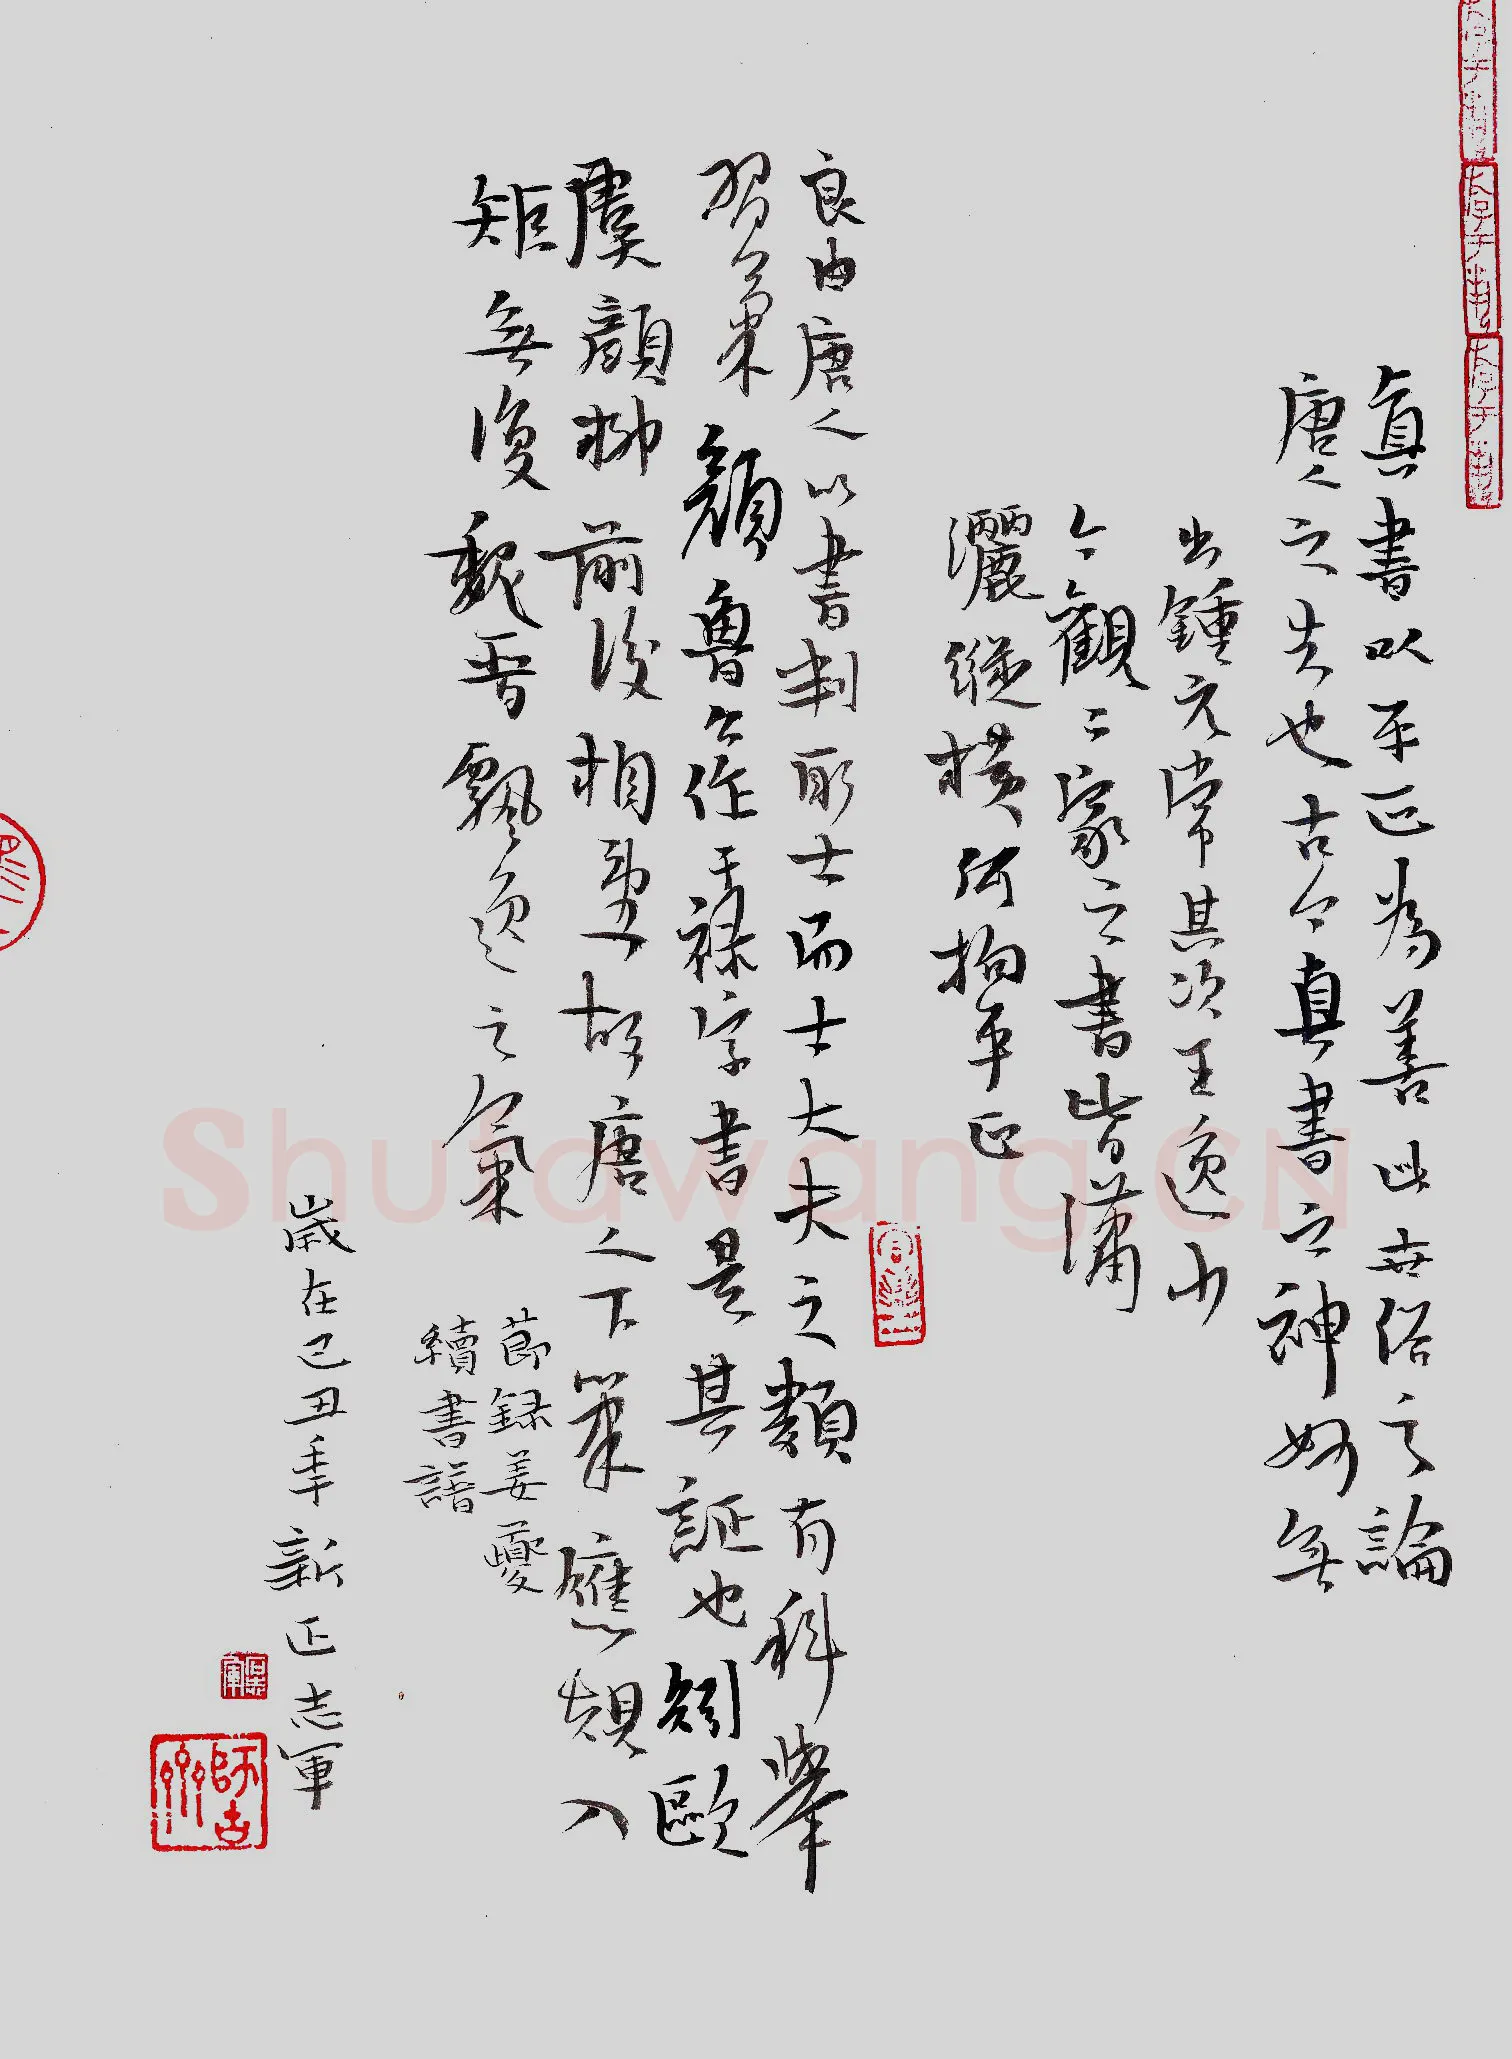 真書以平正為善此世俗之論
唐人之失也古今真書之神妙無
出鍾元常其次王逸少
今觀二家之書皆瀟
灑縱橫何拘平正
良由唐人以書判取士而士大夫之類有科舉
習氣顏魯公作干祿字書是其証也矧歐
虞顏柳前後相望故唐人下筆應規入
矩無復魏晉飄逸之氣
節録姜夔
續書譜
歲在己丑年新正志軍
師古
Shufawang.CN